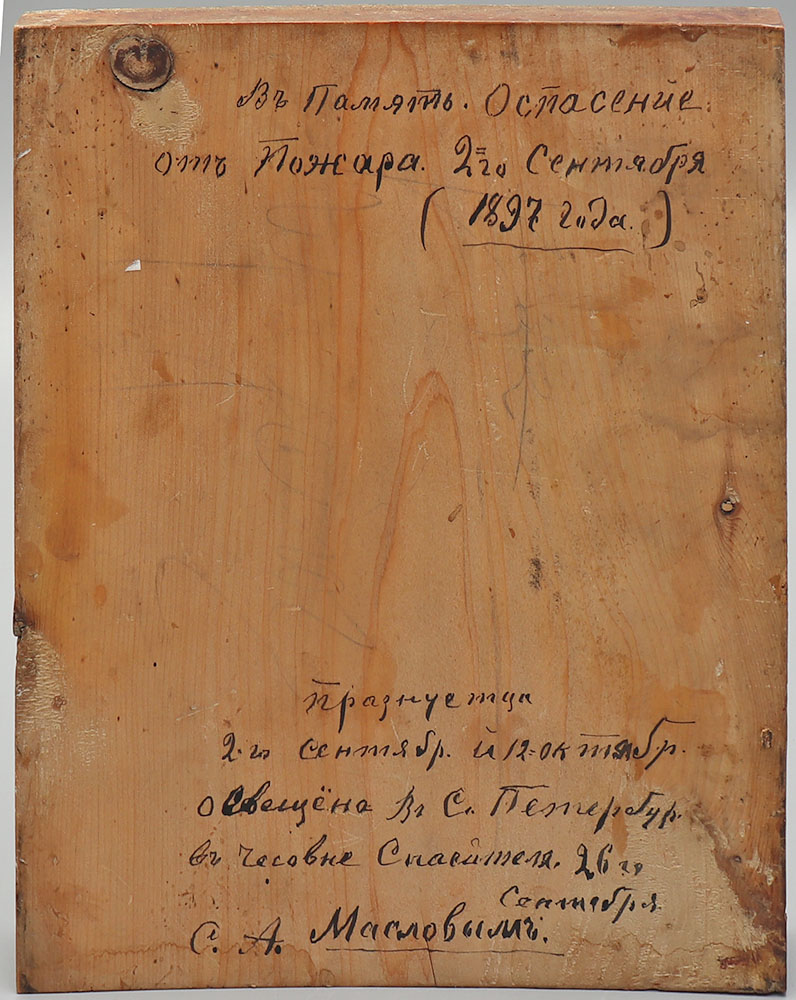 Въ Память. Оспасение
отъ Пожара. 2=го Сентября
( 1897 года. )
празнуетца
2-го сентябр. и 12-октябр.
освещёна Въ С. Петербур.
въ Часовне Спасителя. 26го
Сентебря
С. А. Масловымъ.